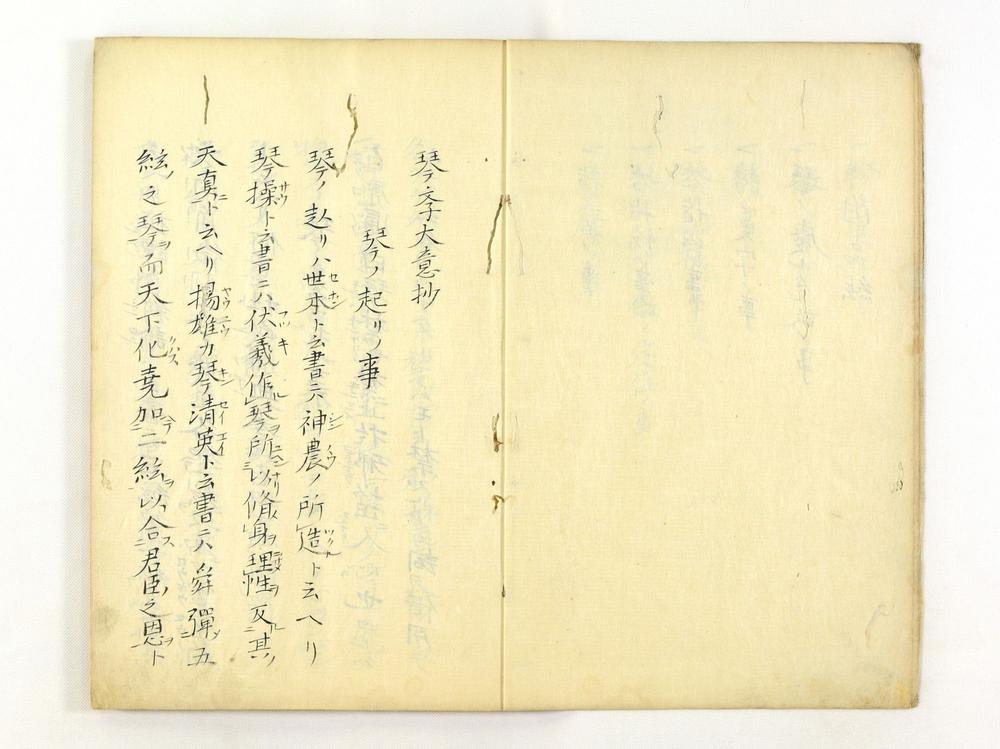 琴文字大意抄
琴ノ起リノ事
琴ノ起リハ世本ト云書ニハ神農ノ所造ト云ヘリ
琴操ト云書ニハ伏羲作琴所以脩身理性反其
天真ト云ヘリ揚雄カ琴清英ト云書ニハ舜彈五
絃之琴而天下化堯加二絃以合君臣之恩ト